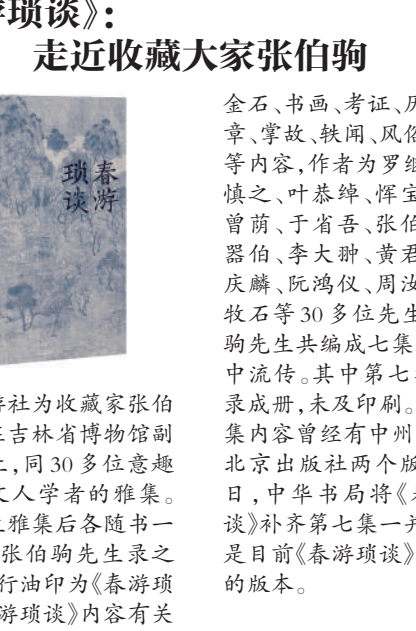 游琐谈》：
走近收藏大家张伯驹
春游
琐谈
社为收藏家张伯
吉林省博物馆副
上，同30多位意趣
文人学者的雅集。
雅集后各随书一
张伯驹先生录之
行油印为《春游琐
游琐谈》内容有关
金石、书画、考证、历
章、掌故、轶闻、风俗
等内容，作者为罗继
慎之、叶恭绰、恽宝
曾荫、于省吾、张伯
器伯、李大翀、黄君
庆麟、阮鸿仪、周汝
牧石等30多位先生
驹先生共编成七集
中流传。其中第七
录成册，未及印刷。
集内容曾经有中州
北京出版社两个版
日，中华书局将《春
谈》补齐第七集一并
是目前《春游琐谈》
的版本。